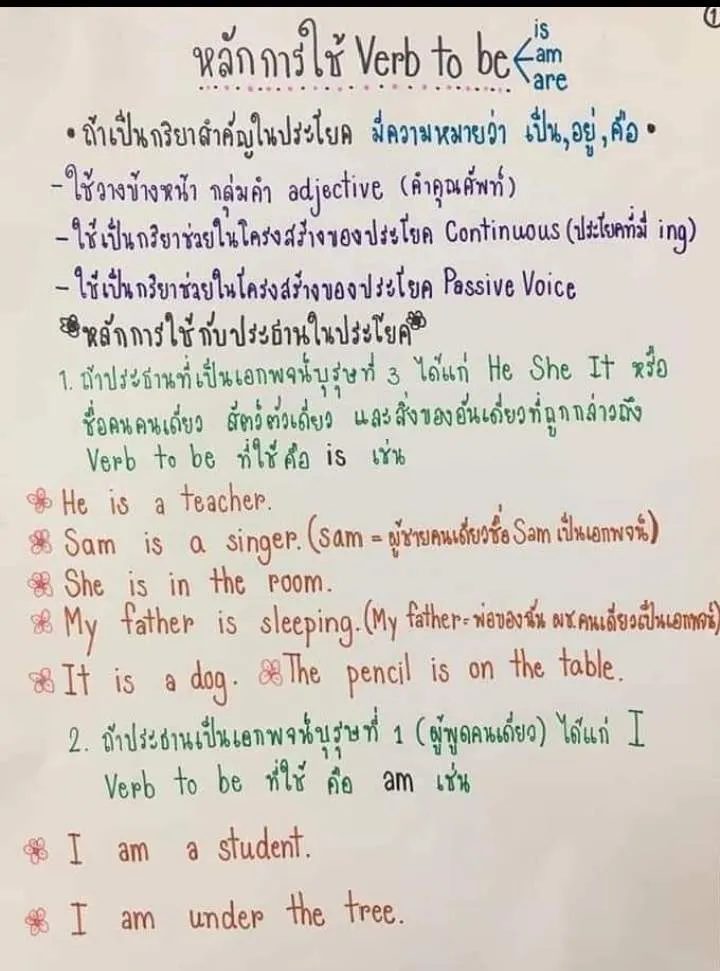 ①
หลักการใช้ Verb to be is am are
• ถ้าเป็นกริยาสำคัญในประโยค มีความหมายว่า เป็น,อยู่,คือ •
- ใช้วางข้างหน้า กลุ่มคำ adjective (คำคุณศัพท์)
- ใช้เป็นกริยาช่วยในโครงสร้างของประโยค Continuous (ประโยคที่มี ing)
- ใช้เป็นกริยาช่วยในโครงสร้างของประโยค Passive Voice
หลักการใช้กับประธานในประโยค
1. ถ้าประธานที่เป็นเอกพจน์บุรุษที่ 3 ได้แก่ He She It หรือ
ชื่อคนคนเดียว สัตว์ตัวเดียว และสิ่งของอันเดียวที่ถูกกล่าวถึง
Verb to be ที่ใช้คือ is เช่น
He is a teacher.
Sam is a singer. (sam = ผู้ชายคนเดียวชื่อ Sam เป็นเอกพจน์)
She is in the room.
My father is sleeping. (My father = พ่อของฉัน ผช คนเดียวเป็นเอกพจน์)
It is a dog. The pencil is on the table.
2. ถ้าประธานเป็นเอกพจน์บุรุษที่ 1 (ผู้พูดคนเดียว) ได้แก่ I
Verb to be ที่ใช้ คือ am เช่น
I am a student.
I am under the tree.